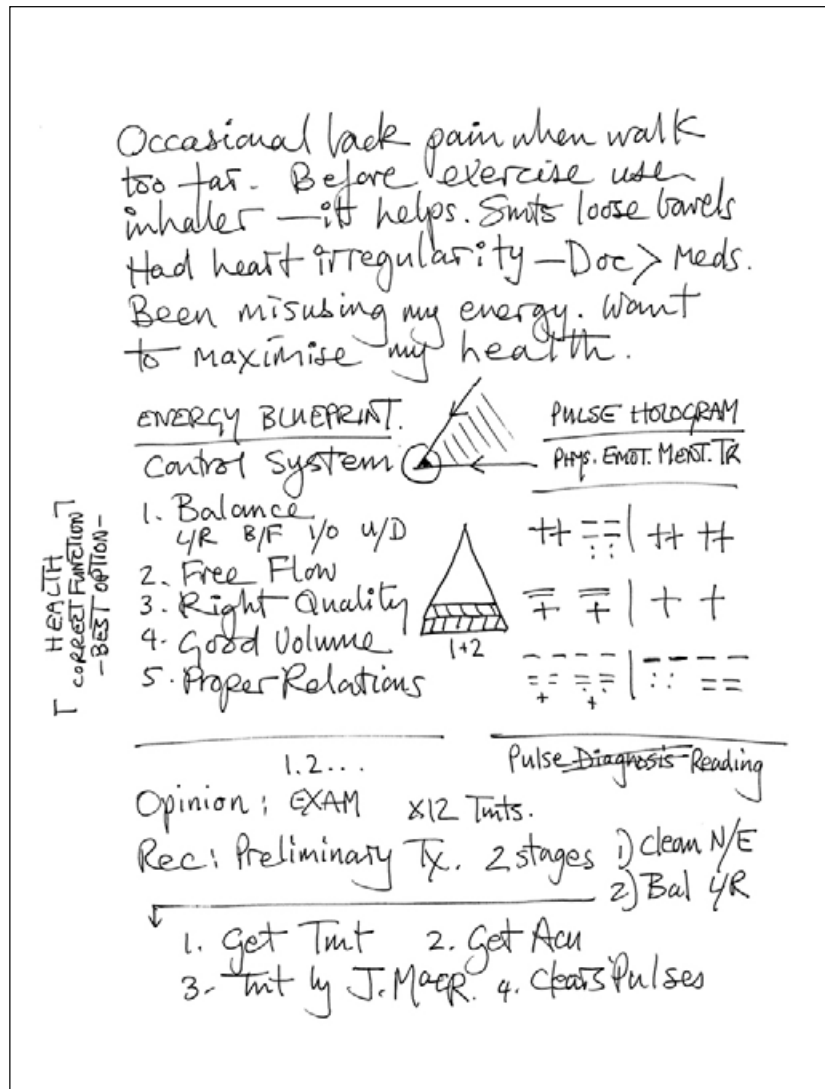 Occasional back pain when walk
too far. Before exercise use
inhaler — it helps. Smts loose bowels
Had heart irregularity — Doc > Meds.
Been misusing my energy. Want
to maximise my health.
ENERGY BLUEPRINT.
Control System
1. Balance
L/R B/F I/O U/D
2. Free Flow
3. Right Quality
4. Good Volume
5. Proper Relations
HEALTH
CORRECT FUNCTION
- BEST OPTION -
1+2
PULSE HOLOGRAM
PHYS. EMOT. MENT. TR
Pulse Diagnosis Reading
1.2...
Opinion: EXAM x12 Tmts.
Rec: Preliminary Tx. 2 stages 1) Clean N/E
2) Bal L/R
1. Get Tmt 2. Get Acu
3. Tmt by J. MacR. 4. Clears Pulses